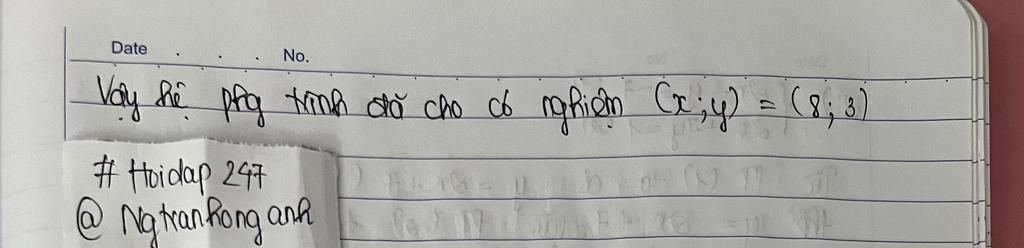 Date . . . No.
Vậy hệ phg trình đã cho có nghiệm (x;y) = (8; 3)
# Hoidap 247
@ Ngtranhonganh